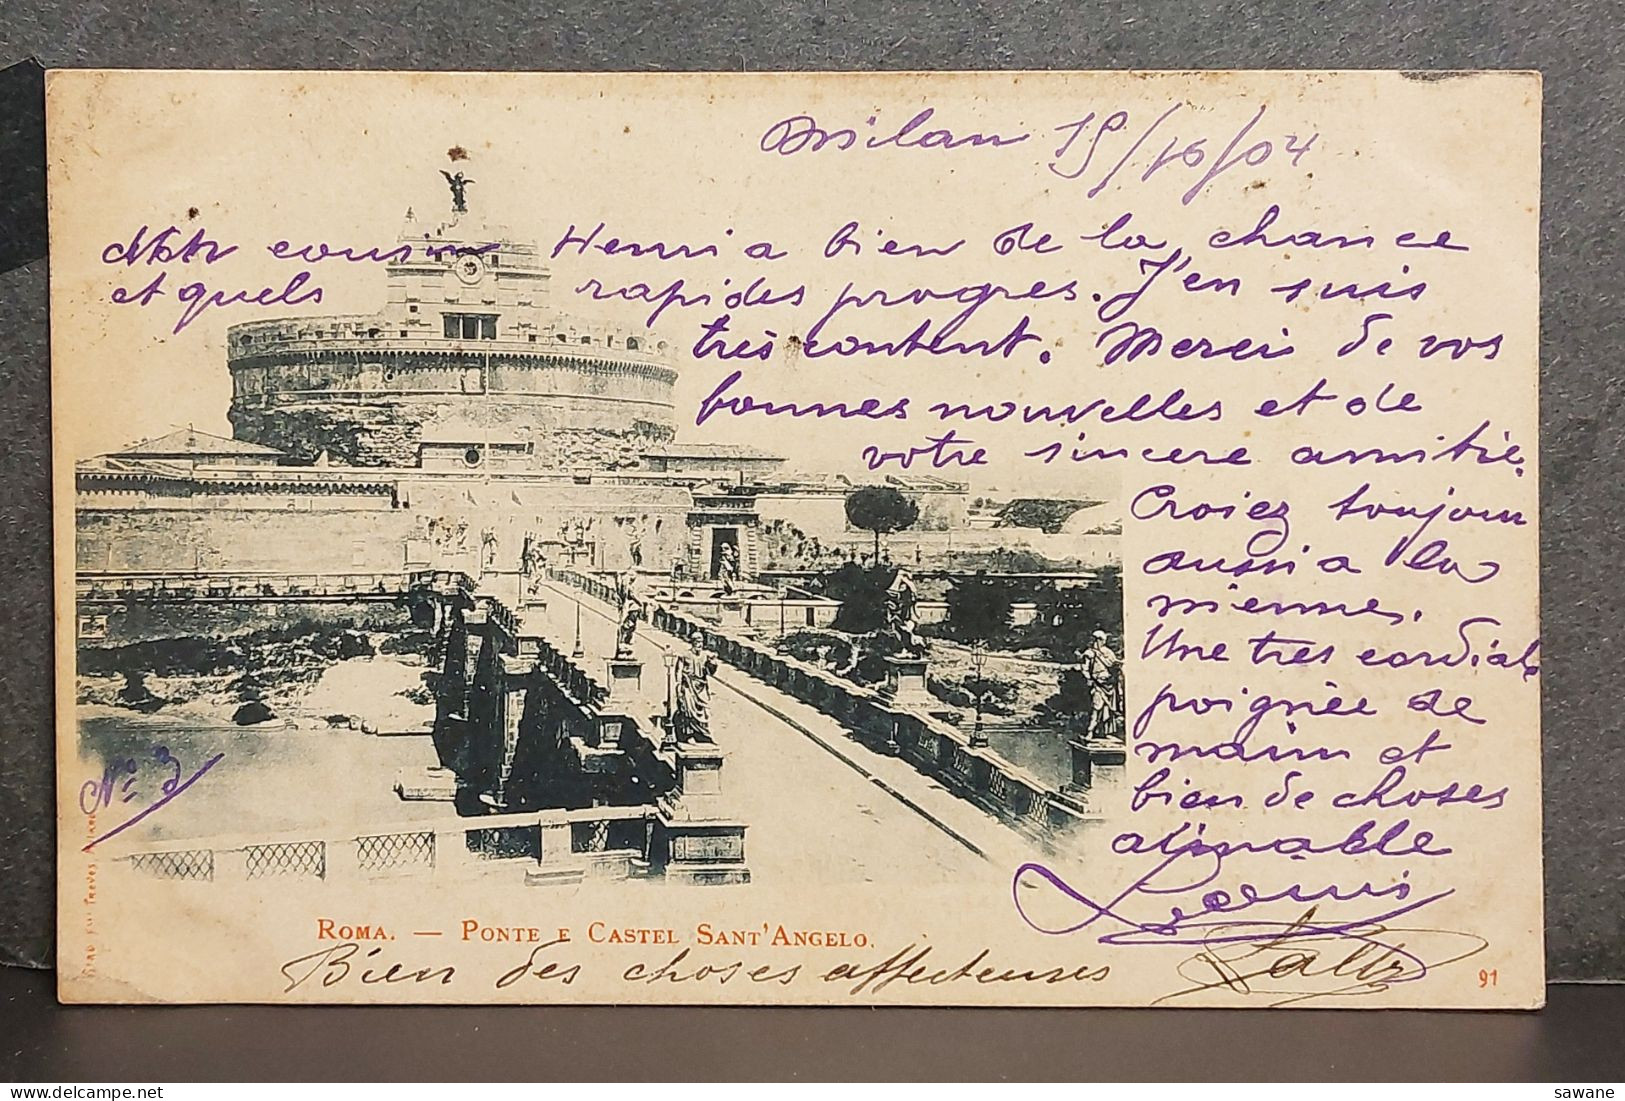 Milan 15/10/04
Mon cousin Henri a bien de la chance
et quels rapides progres. J'en suis
très content. Merci de vos
bonnes nouvelles et de
votre sincere amitié.
Croiez toujours
aussi a la
mienne.
Une tres cordiale
poignée de
main et
bien de choses
aimable
Louis
No 3
ROMA. — PONTE E CASTEL SANT'ANGELO.
Bien des choses affecteuses
91
sawane